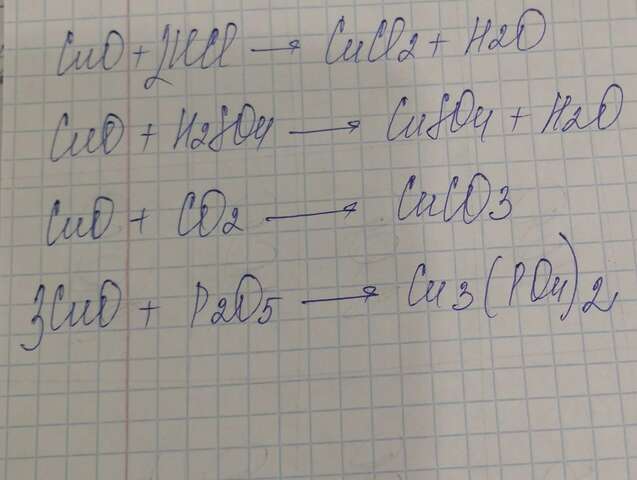 CuO + 2HCl → CuCl2 + H2O
CuO + H2SO4 → CuSO4 + H2O
CuO + CO2 → CuCO3
3CuO + P2O5 → Cu3(PO4)2